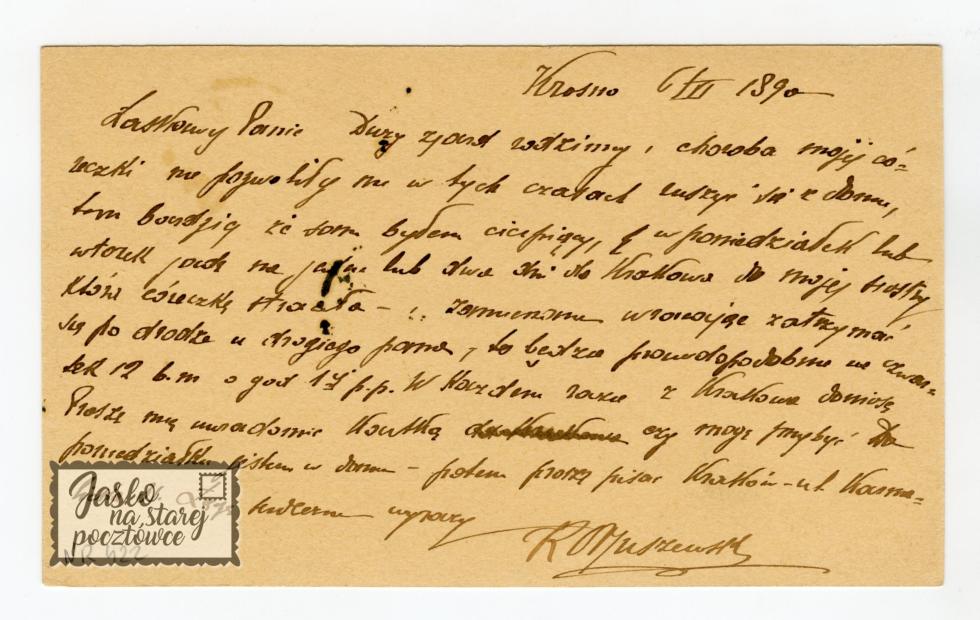 Krosno 6/III 1890
Łaskawy Panie Duży zjazd rodzinny, choroba mojej có-
reczki nie pozwoliły mi w tych czasach ruszyć się z domu,
tem bardziej że sam byłem cierpiący, w poniedziałek lub
wtorek jadę na jeden lub dwa dni do Krakowa do mojej siostry
która córeczkę straciła – zamierzam wracając zatrzymać
się po drodze u drogiego pana, to będzie prawdopodobnie we czwar-
tek 12 b.m. o god 1 p.p. W każdem razie z Krakowa doniosę
Proszę mię uwiadomić kartką czy mogę przybyć do
poniedziałku jestem w domu – potem proszę pisać Kraków – ul.
serdeczne wyrazy
Jaśko
na starej
pocztówce
NR 622